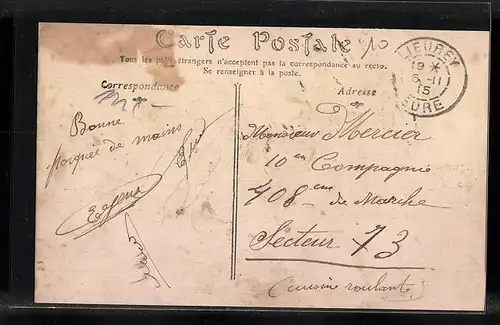 Carte Postale
Tous les pays étrangers n'acceptent pas la correspondance au recto.
Se renseigner à la poste.
Correspondance
Adresse
LIEUREY
19 *
6 -11
15
EURE
Bonne
poignée de mains
Monsieur Mercier
10 en Compagnie
408 eme de Marche
Secteur 73
(cuisin roulante)